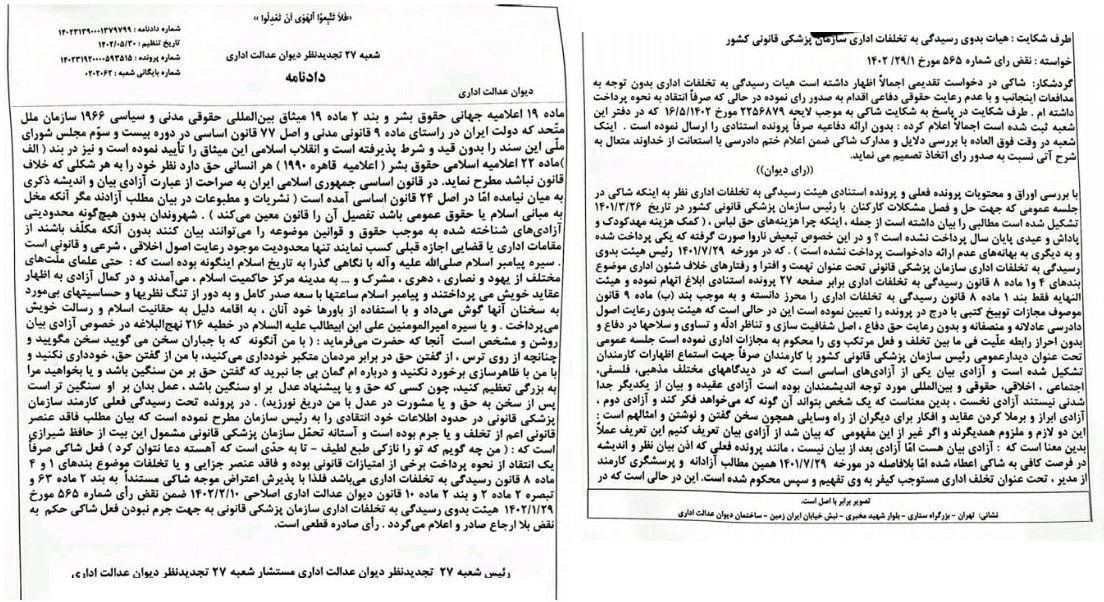 طرف شکایت : هیات بدوی رسیدگی به تخلفات اداری سازمان پزشکی قانونی کشور
خواسته : نقض رای شماره ۵۶۵ مورخ ۲۹/۱/ ۱۴۰۲
گردشکار: شاکی در دخواست تقدیمی اجمالاً اظهار داشته است هیات رسیدگی به تخلفات اداری بدون توجه به
مدافعات اینجانب و با عدم رعایت حقوقی دفاعی اقدام به صدور رای نموده در حالی که صرفاً انتقاد به نحوه پرداخت
داشته ام . طرف شکایت در پاسخ به شکایت شاکی به موجب لایحه ۲۲۵۶۸۷۹ مورخ ۱۶/۵/۱۴۰۲ که در دفتر این
شعبه ثبت شده است اجمالاً اعلام کرده : بدون ارائه دفاعیه صرفاً پرونده استنادی را ارسال نموده است . اینک
شعبه در وقت فوق العاده با بررسی دلایل و مدارک شاکی ضمن اعلام ختم دادرسی با استعانت از خداوند متعال به
شرح آتی نسبت به صدور رای اتخاذ تصمیم می نماید.
((رای دیوان))
با بررسی اوراق و محتویات پرونده فعلی و پرونده استنادی هیئت رسیدگی به تخلفات اداری نظر به اینکه شاکی در
جلسه عمومی که جهت حل و فصل مشکلات کارکنان با رئیس سازمان پزشکی قانونی کشور در تاریخ ۱۴۰۱/۳/۲۶
تشکیل شده است مطالبی را بیان داشته است از جمله ، اینکه چرا هزینه‌های حق لباس ، ( کمک هزینه مهدکودک و
پاداش و عیدی پایان سال پرداخت نشده است ؟ و در این خصوص تبعیض ناروا صورت گرفته که یکی پرداخت شده
و به دیگری به بهانه‌های عدم ارائه دادخواست پرداخت نشده است ) . که در مورخه ۱۴۰۱/۷/۲۹ رئیس هیئت بدوی
رسیدگی به تخلفات اداری سازمان پزشکی قانونی تحت عنوان تهمت و افترا و رفتارهای خلاف شئون اداری موضوع
بندهای ۴ و۱ ماده ۸ قانون رسیدگی به تخلفات اداری برابر صفحه ۲۷ پرونده استنادی ابلاغ اتهام نموده و هیئت
النهایه فقط بند ۱ ماده ۸ قانون رسیدگی به تخلفات اداری را محرز دانسته و به موجب بند (ب) ماده ۹ قانون
موصوف مجازات توبیخ کتبی با درج در پرونده را تعیین نموده است این در حالی است که هیئت بدون رعایت اصول
دادرسی عادلانه و منصفانه و بدون رعایت حق دفاع ، اصل شفافیت سازی و تناظر ادلّه و تساوی و سلاحها در دفاع و
بدون احراز رابطه علّیت فی ما بین تخلف و فعل مرتکب وی را محکوم به مجازات اداری نموده است جلسه عمومی
تحت عنوان دیدارعمومی رئیس سازمان پزشکی قانونی کشور با کارمندان صرفاً جهت استماع اظهارات کارمندان
تشکیل شده است و آزادی بیان یکی از آزادی‌های اساسی است که در دیدگاههای مختلف مذهبی، فلسفی،
اجتماعی ، اخلاقی، حقوقی و بین‌المللی مورد توجه اندیشمندان بوده است آزادی عقیده و بیان از یکدیگر جدا
شدنی نیستند آزادی نخست ، بدین معناست که یک شخص بتواند آن گونه که می‌خواهد فکر کند و آزادی دوم ،
آزادی ابراز و برملا کردن عقاید و افکار برای دیگران از راه وسایلی همچون سخن گفتن و نوشتن و امثالهم است :
این دو لازم و ملزوم همدیگرند و اگر غیر از این مفهومی که بیان شد از آزادی بیان تعریف کنیم این تعریف عملاً
بدین معنا است که : آزادی بیان هست امّا آزادی بعد از بیان نیست ، مانند پرونده فعلی که اذن بیان نظر و اندیشه
در فرصت کافی به شاکی اعطاء شده امّا بلافاصله در مورخه ۱۴۰۱/۷/۲۹ همین مطالب آزادانه و پرسشگری کارمند
از مدیر ، تحت عنوان تخلف اداری مستوجب کیفر به وی تفهیم و سپس محکوم شده است. این در حالی است که در
تصویر برابر با اصل است.
نشانی: تهران - بزرگراه ستاری - بلوار شهید مخبری - نبش خیابان ایران زمین - ساختمان دیوان عدالت اداری
«فَلا تَتَّبِعُوا الهَوی أن تَعدِلُوا»
شماره دادنامه : ۱۴۰۲۳۱۳۹۰۰۰۱۳۷۹۷۹۹
تاریخ تنظیم : ۱۴۰۲/۰۵/۳۰
شماره پرونده : ۱۴۰۲۳۱۹۲۰۰۰۰۵۹۳۵۱۵
شماره بایگانی شعبه : ۰۲۰۲۰۶۲
شعبه ۲۷ تجدیدنظر دیوان عدالت اداری
دادنامه
دیوان عدالت اداری
ماده ۱۹ اعلامیه جهانی حقوق بشر و بند ۲ ماده ۱۹ میثاق بین‌المللی حقوقی مدنی و سیاسی ۱۹۶۶ سازمان ملل
متّحد که دولت ایران در راستای ماده ۹ قانونی مدنی و اصل ۷۷ قانون اساسی در دوره بیست و سوّم مجلس شورای
ملّی این سند را بدون قید و شرط پذیرفته است و انقلاب اسلامی این میثاق را تأیید نموده است و نیز در بند ( الف
)ماده ۲۲ اعلامیه اسلامی حقوق بشر ( اعلامیه قاهره ۱۹۹۰ ) هر انسانی حق دارد نظر خود را به هر شکلی که خلاف
قانون نباشد مطرح نماید. در قانون اساسی جمهوری اسلامی ایران به صراحت از عبارت آزادی بیان و اندیشه ذکری
به میان نیامده امّا در اصل ۲۴ قانون اساسی آمده است ( نشریات و مطبوعات در بیان مطلب آزادند مگر آنکه مخل
به مبانی اسلام یا حقوق عمومی باشد تفصیل آن را قانون معین می‌کند ) . شهروندان بدون هیچ‌گونه محدودیتی
آزادی‌های شناخته شده به موجب حقوق و قوانین موضوعه را می‌توانند بیان کنند بدون آنکه مکلّف باشند از
مقامات اداری یا قضایی اجازه قبلی کسب نمایند تنها محدودیت موجود رعایت اصول اخلاقی ، شرعی و قانونی است
. سیره پیامبر اسلام صلی‌الله علیه وآله با نگاهی گذرا به تاریخ اسلام اینگونه بوده است که : حتی علمای ملّت‌های
مختلف از یهود و نصاری ، دهری ، مشرک و ... به مدینه مرکز حاکمیت اسلام ، می‌آمدند و در کمال آزادی به اظهار
عقاید خویش می پرداختند و پیامبر اسلام ساعتها با سعه صدر کامل و به دور از تنگ نظریها و حساسیتهای بی‌مورد
به سخنان آنها گوش می‌داد و با استفاده از باورها خود آنان ، به اقامه دلیل به حقانیت اسلام و رسالت خویش
می‌پرداخت . و یا سیره امیرالمومنین علی ابن ابیطالب علیه السلام در خطبه ۲۱۶ نهج‌البلاغه در خصوص آزادی بیان
روشن و مشخص است آنجا که حضرت می‌فرماید : ( با من آنگونه که با جباران سخن می گویید سخن مگویید و
چنانچه از روی ترس ، از گفتن حق در برابر مردمان متکبر خودداری می‌کنید، با من از گفتن حق، خودداری نکنید و
با من با ظاهرسازی برخورد نکنید و درباره ام گمان بی جا نبرید که گفتن حق بر من سنگین باشد و یا بخواهید مرا
به بزرگی تعظیم کنید، چون کسی که حق و یا پیشنهاد عدل بر او سنگین باشد ، عمل بدان بر او سنگین تر است
پس از سخن به حق و یا مشورت در عدل با من دریغ نورزید) . در پرونده تحت رسیدگی فعلی کارمند سازمان
پزشکی قانونی در حدود اطلاعات خود انتقادی را به رئیس سازمان مطرح نموده است که بیان مطلب فاقد عنصر
قانونی اعم از تخلف و یا جرم بوده است و آستانه تحمّل سازمان پزشکی قانونی مشمول این بیت از حافظ شیرازی
است که : ( من چه گویم که تو را نازکی طبع لطیف - تا به حدّی است که آهسته دعا نتوان کرد ) فعل شاکی صرفاً
یک انتقاد از نحوه پرداخت برخی از امتیازات قانونی بوده و فاقد عنصر جزایی و یا تخلفات موضوع بندهای ۱ و ۴
ماده ۸ قانون رسیدگی به تخلفات اداری می‌باشد فلذا با پذیرش اعتراض موجه شاکی مستنداً به بند ۲ ماده ۶۳ و
تبصره ۲ ماده ۲ و بند ۲ ماده ۱۰ قانون دیوان عدالت اداری اصلاحی ۱۴۰۲/۲/۱۰ ضمن نقض رأی شماره ۵۶۵ مورخ
۱۴۰۲/۱/۲۹ هیئت بدوی رسیدگی به تخلفات اداری سازمان پزشکی قانونی به جهت جرم نبودن فعل شاکی حکم به
نقض بلا ارجاع صادر و اعلام می‌گردد . رأی صادره قطعی است.
رئیس شعبه ۲۷ تجدیدنظر دیوان عدالت اداری مستشار شعبه ۲۷ تجدیدنظر دیوان عدالت اداری